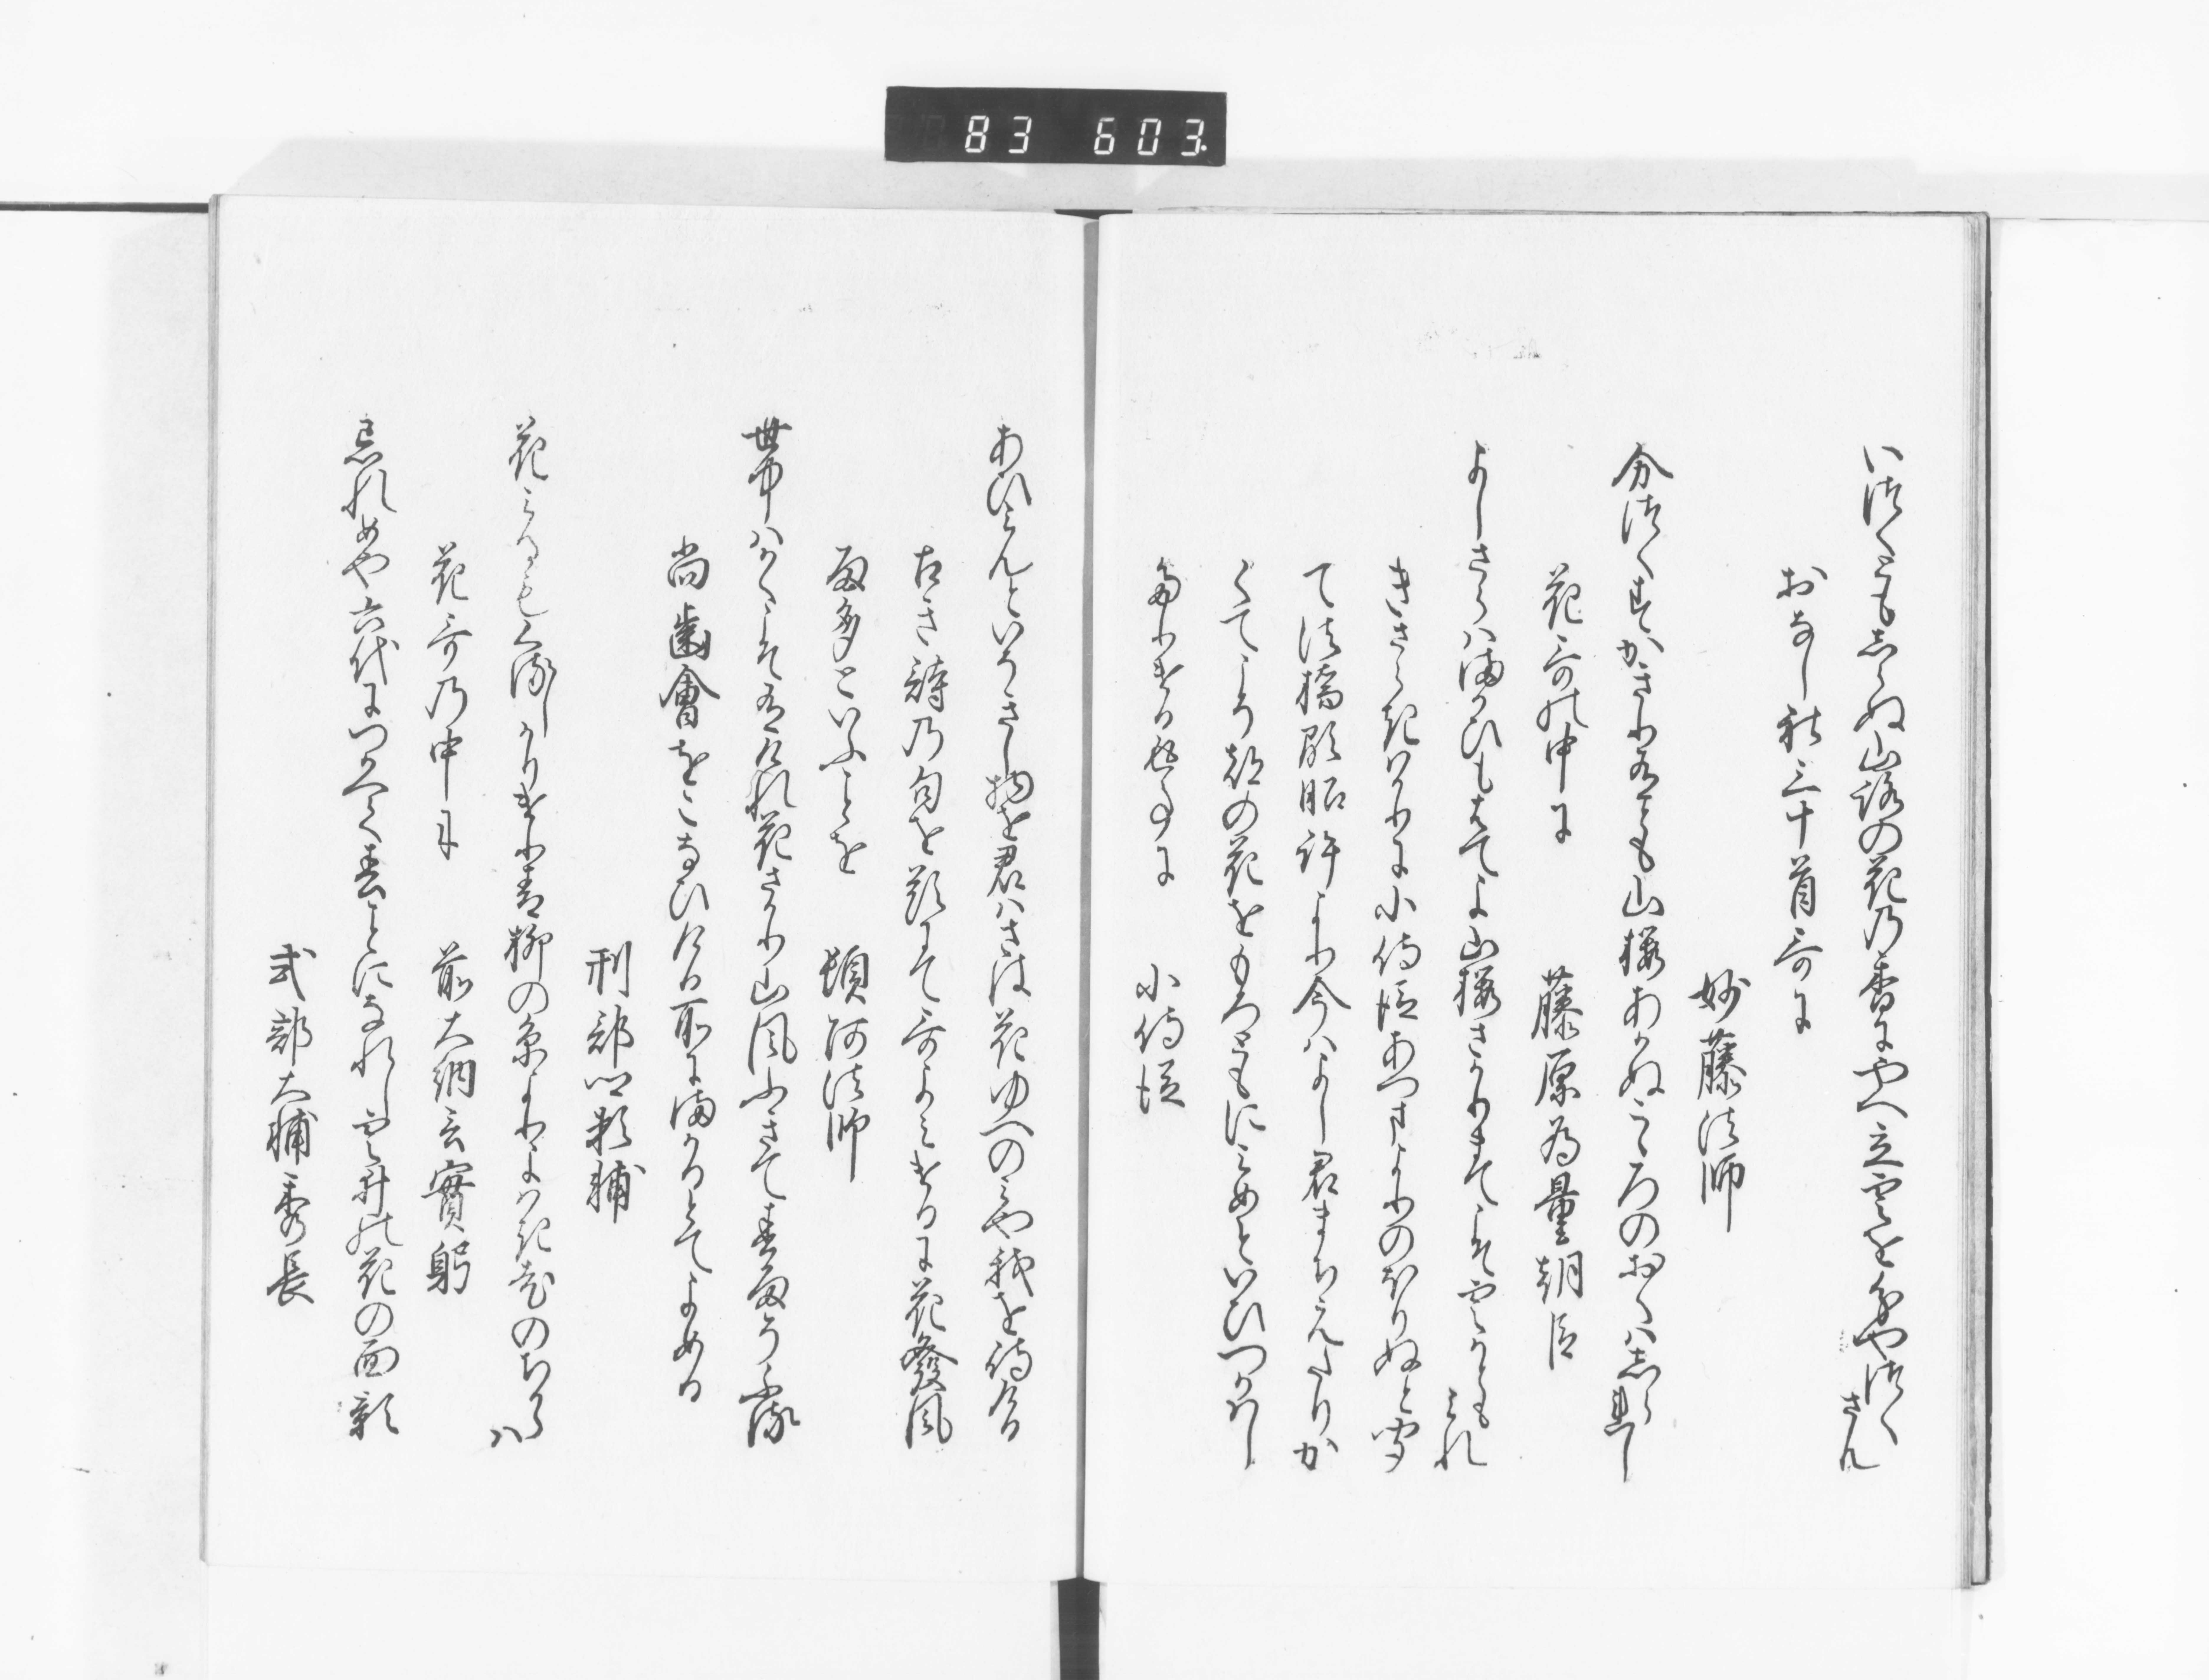 83 603
いつくともしらぬ山路の花の香にやへ立雲を分やつくさん
おなし秋三十首哥に
妙藤法師
分つくすかきりありとも山桜あかぬこゝろのおくはしられし
花哥の中に
藤原為量朝臣
よしさらはまかひもはてよ山桜さかりすてこそ雲とも
みれ
きさらきはかりに小侍従あつまよりのほりぬと聞
て法橋顕昭許より今はよし君まちえたりか
くてより都の花をもろともにみめといひつかはし
たりける返事に
小侍従
あひみんといそきし物を君はさは花ゆへのみや我を待ける
古き詩の句を題にて哥よみけるに花發風
雨多といふことを
頓阿法師
世中はかくこそ有けれ花さかり山風ふきて春雨そふる
尚歯會をこなひける所にまかるとてよめる
刑部卿頼輔
花みるもくるしかりけり青柳の糸よりよはき老のちからは
花哥の中に
前大納言實躬
忘れめや六代につかへて春ことになれし雲井の花の面影
式部大輔秀長